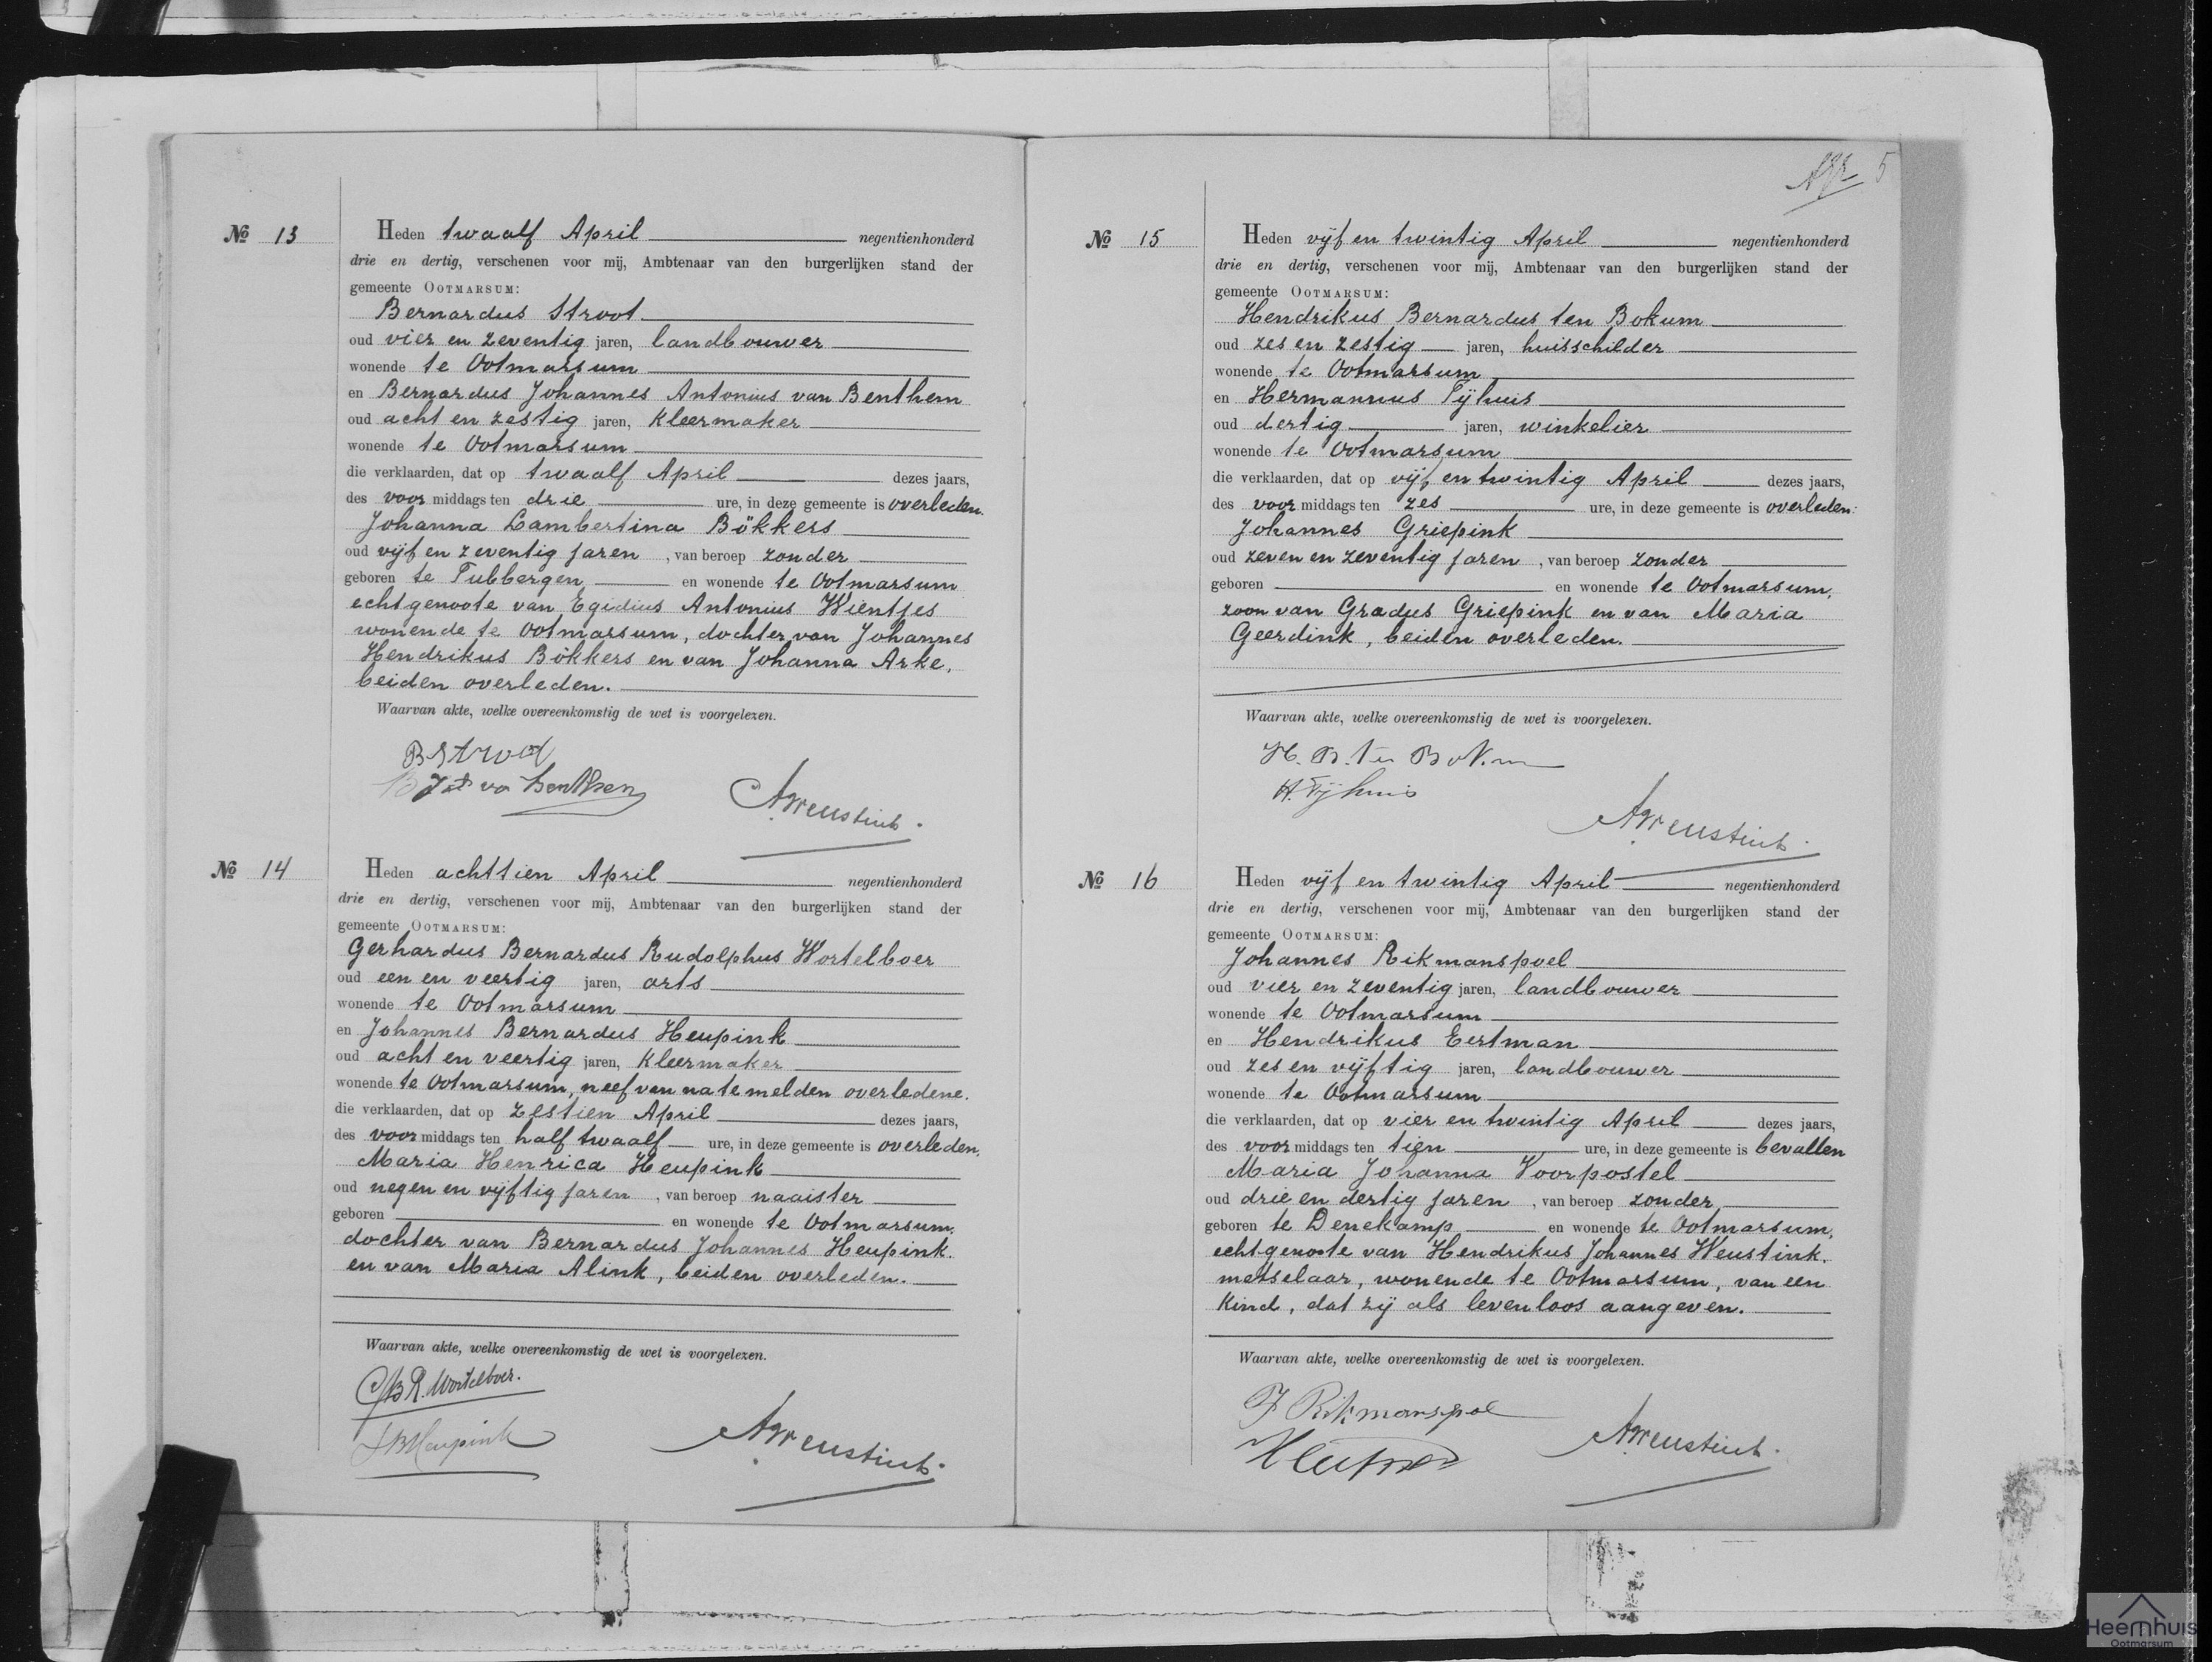 № 13
Heden twaalf April negentienhonderd
drie en dertig, verschenen voor mij, Ambtenaar van den burgerlijken stand der
gemeente OOTMARSUM:
Bernardus Stroot
oud vier en zeventig jaren, landbouwer
wonende te Ootmarsum
en Bernardus Johannes Antonius van Benthem
oud acht en zestig jaren, kleermaker
wonende te Ootmarsum
die verklaarden, dat op twaalf April dezes jaars,
des voormiddags ten drie ure, in deze gemeente is overleden.
Johanna Lambertina Bökkers
oud vijf en zeventig jaren, van beroep zonder
geboren te Tubbergen en wonende te Ootmarsum
echtgenoote van Egidius Antonius Wientjes
wonende te Ootmarsum, dochter van Johannes
Hendrikus Bökkers en van Johanna Arke,
beiden overleden.
Waarvan akte, welke overeenkomstig de wet is voorgelezen.
B Stroot
van Benthem
AWeustink.
№ 14
Heden achttien April negentienhonderd
drie en dertig, verschenen voor mij, Ambtenaar van den burgerlijken stand der
gemeente OOTMARSUM:
Gerhardus Bernardus Rudolphus Wortelboer
oud een en veertig jaren, arts
wonende te Ootmarsum
en Johannes Bernardus Heupink
oud acht en veertig jaren, kleermaker
wonende te Ootmarsum, neef van na te melden overledene.
die verklaarden, dat op zestien April dezes jaars,
des voormiddags ten half twaalf ure, in deze gemeente is overleden.
Maria Henrica Heupink
oud negen en vijftig jaren, van beroep naaister
geboren en wonende te Ootmarsum,
dochter van Bernardus Johannes Heupink.
en van Maria Alink, beiden overleden.
Waarvan akte, welke overeenkomstig de wet is voorgelezen.
GBR. Wortelboer.
JBHeupink
AWeustink.
5
№ 15
Heden vijf en twintig April negentienhonderd
drie en dertig, verschenen voor mij, Ambtenaar van den burgerlijken stand der
gemeente OOTMARSUM:
Hendrikus Bernardus ten Bokum
oud zes en zestig jaren, huisschilder
wonende te Ootmarsum
en Hermannus Tijhuis
oud dertig jaren, winkelier
wonende te Ootmarsum
die verklaarden, dat op vijf en twintig April dezes jaars,
des voormiddags ten zes ure, in deze gemeente is overleden:
Johannes Griepink
oud zeven en zeventig jaren, van beroep zonder
geboren en wonende te Ootmarsum,
zoon van Gradus Griepink en van Maria
Geerdink, beiden overleden.
Waarvan akte, welke overeenkomstig de wet is voorgelezen.
H. B. ten Bokum
H. Tijhuis
AWeustink.
№ 16
Heden vijf en twintig April negentienhonderd
drie en dertig, verschenen voor mij, Ambtenaar van den burgerlijken stand der
gemeente OOTMARSUM:
Johannes Rikmanspoel
oud vier en zeventig jaren, landbouwer
wonende te Ootmarsum
en Hendrikus Eertman
oud zes en vijftig jaren, landbouwer
wonende te Ootmarsum
die verklaarden, dat op vier en twintig April dezes jaars,
des voormiddags ten tien ure, in deze gemeente is bevallen
Maria Johanna Voorpostel
oud drie en dertig jaren, van beroep zonder
geboren te Denekamp en wonende te Ootmarsum,
echtgenoote van Hendrikus Johannes Weustink.
metselaar, wonende te Ootmarsum, van een
kind, dat zij als levenloos aangeven.
Waarvan akte, welke overeenkomstig de wet is voorgelezen.
J Rikmanspoel
AWeustink.
Heemhuis
Ootmarsum